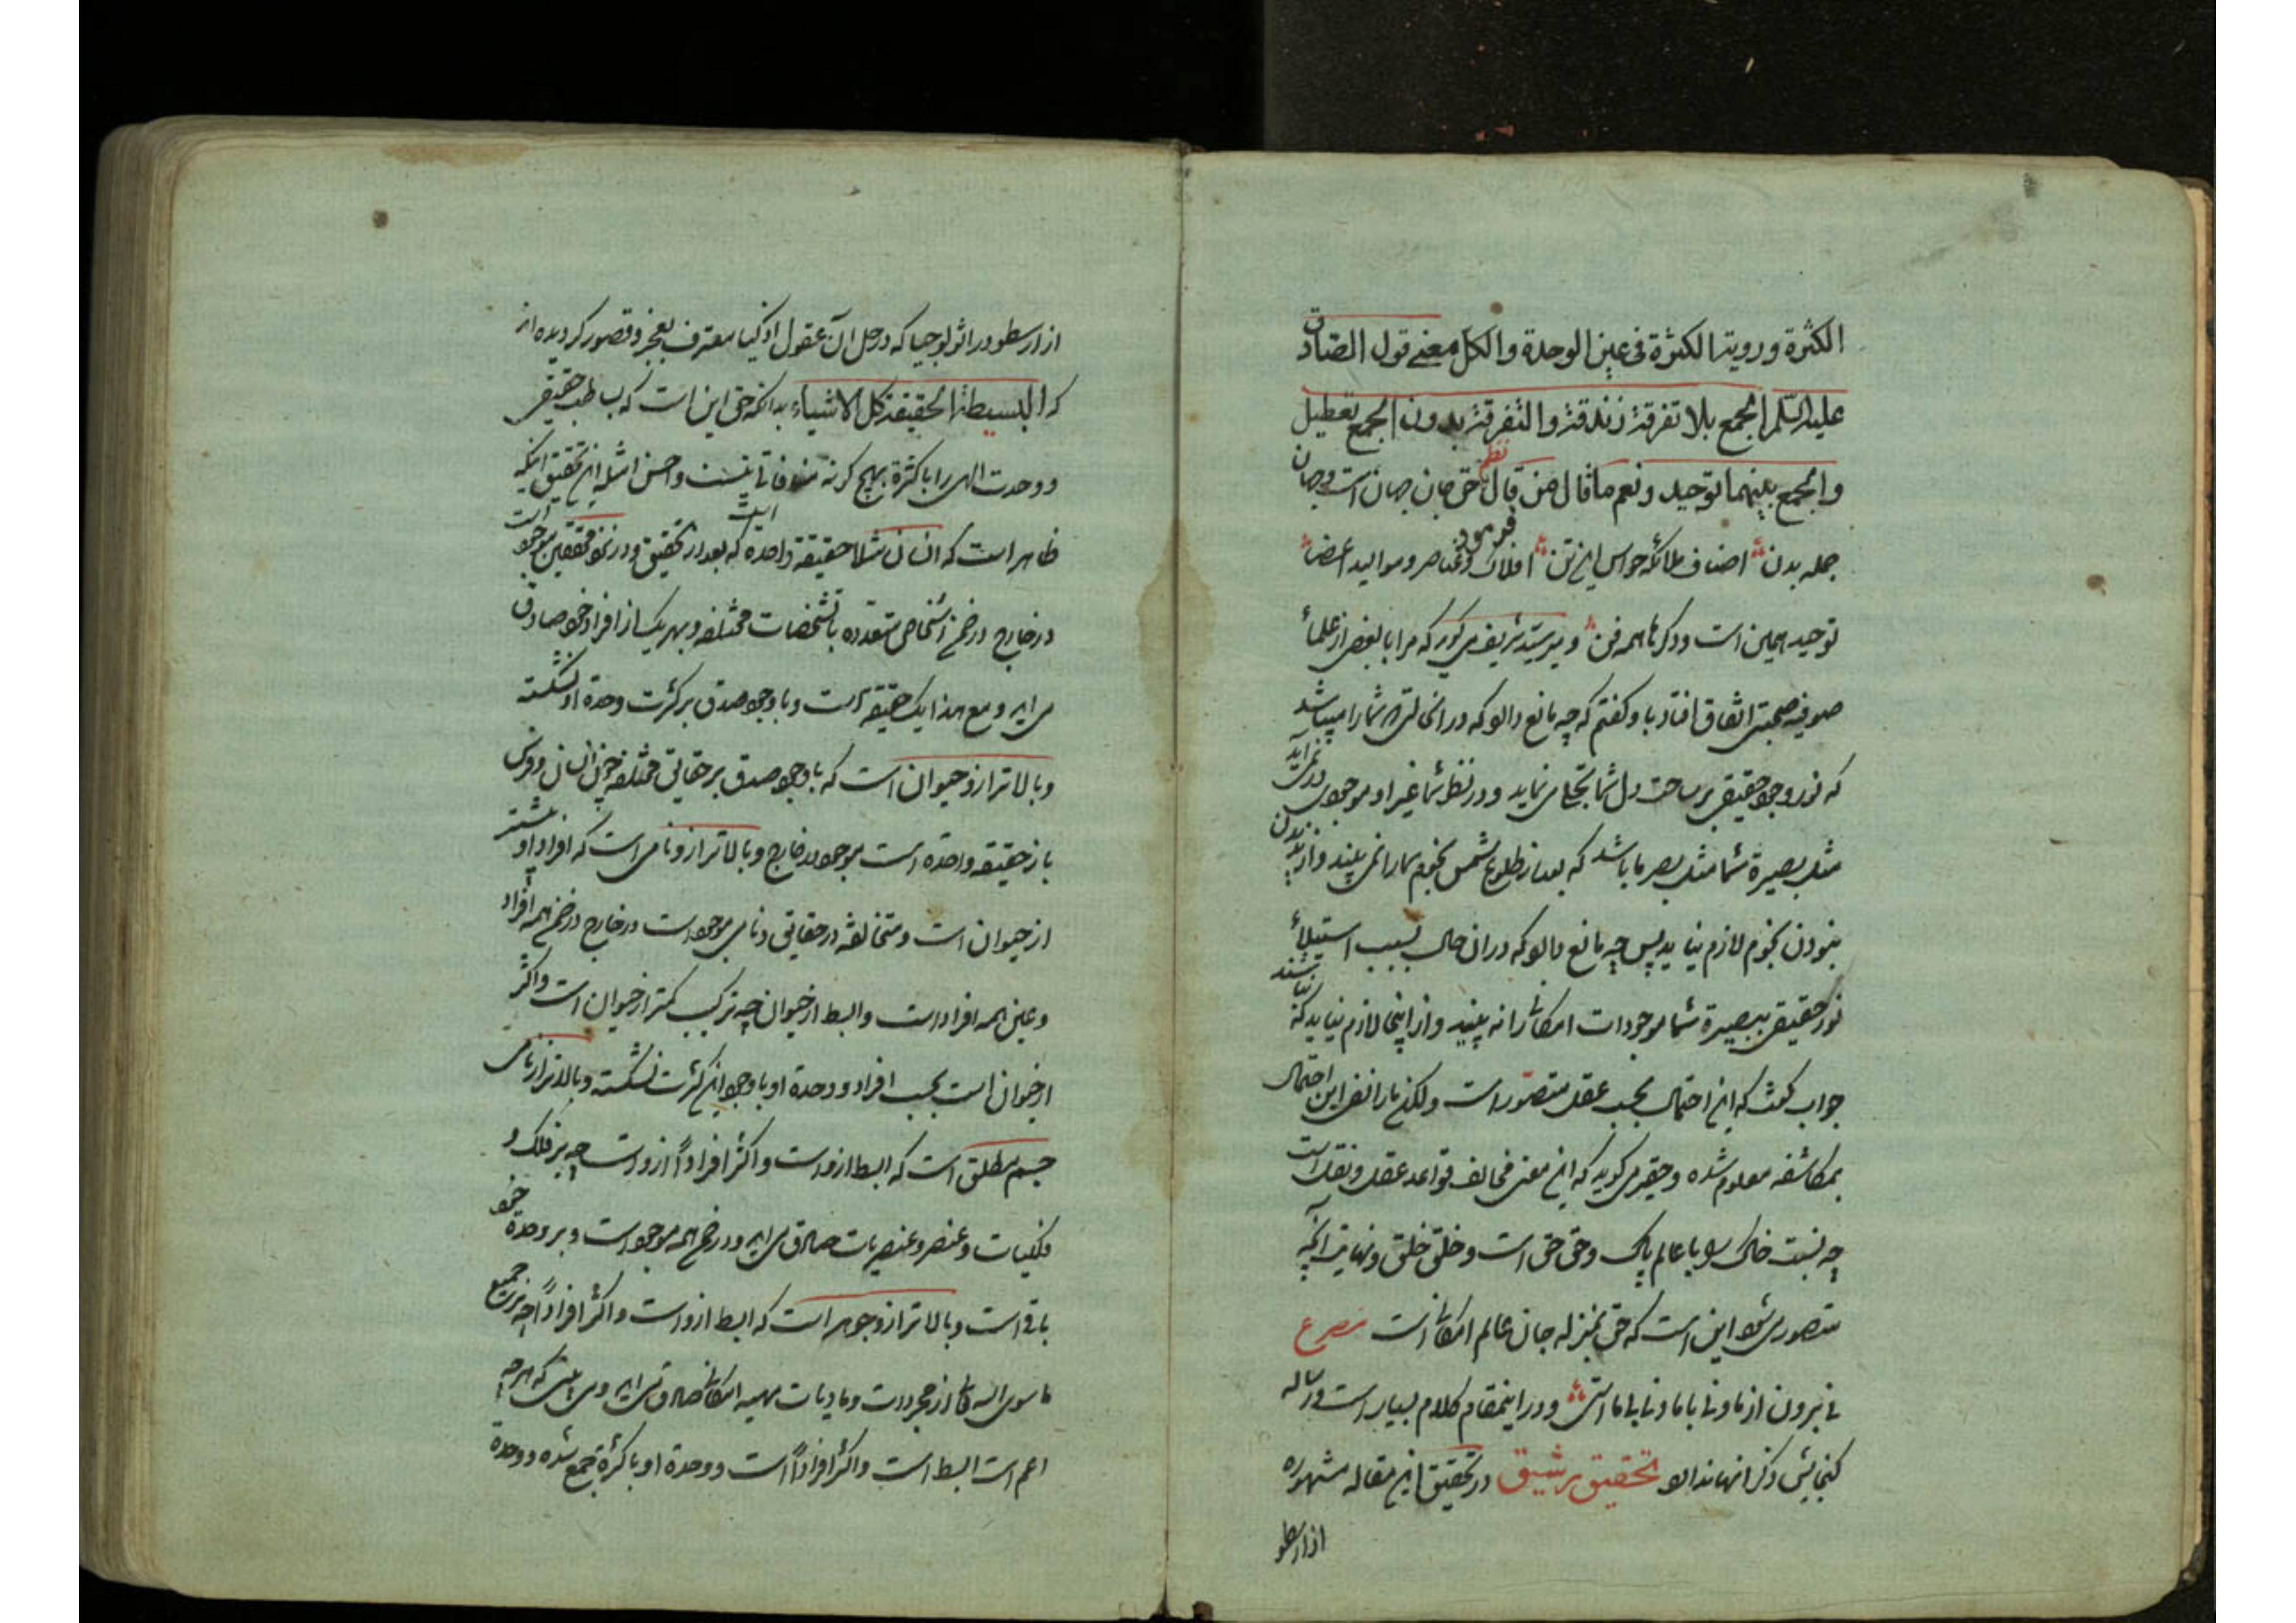 الکثرة و رویة الکثرة فی عین الوحدة والکل معنی قول الصادق
علیه السلم الجمع بلا تفرقة زندقة والتفرقة بدون الجمع تعطیل
والجمع بینهما توحید و نعم ما قال من قال نظم حق جان جهان است و جهان
جمله بدن اصناف ملائکه حواس این تن افلاک و عناصر و موالید اعضا
توحید همین است و دکرها همه فن و میر سید شریف می کوید که مرا با بعض از علماء
صوفیه صحبتی اتفاق افتاد با و کفتم که چه مانع دارد که در انحالتی که شما را میباشد
که نور وجود حقیقی بر ساحت دل شما تجلی می نماید و در نظر شما غیر او موجودی در نمی آید
مثل بصیرة شما مثل بصر ما باشد که بعد از طلوع شمس نجوم سما را نمی بیند و از ندیدن
نبودن نجوم لازم نیاید پس چه مانع دارد که در ان حال بسبب استیلاء
نور حقیقی ببصیرة شما موجودات امکانی را نه بیند و از اینجا لازم نیاید که نباشند
جواب کفت که این احتمال بحسب عقل متصور است ولکن ما را نفی این احتمال
بمکاشفه معلوم شده و حقیر می کوید که این معنی مخالف قواعد عقل و نقل است
چه نسبت خاک را با عالم پاک و حق حق است و خلق خلق و نهایت آنچه
متصور می شود این است که حق بمنزله جان عالم امکانی است مصرع
نی برون از ما و نی با ما و نی بی ماستی و در اینمقام کلام بسیار است و رساله
کنجایش ذکر انها ندارد تحقیق رشیق در تحقیق این مقاله مشهوره
از ارسطو
از ارسطو در اثولوجیا که در حل آن عقول اذکیا معترف بعجز و قصور کردیده اند
که البسیطة الحقیقة کل الاشیاء بدانکه حق این است که بساطت حقیقی
و وحدت الهی را با کثرة بهیچ کونه منافاتی نیست و احسن امثله این تحقیق اینکه
ظاهر است که انسان مثلا حقیقة واحدة ایست که بعد از تحقیق و در نزد محققین موجود است
در خارج در ضمن اشخاص متعدده با تشخصات مختلفه و بهر یک از افراد خود صادق
می اید و مع هذا یک حقیقة است و با وجود صدق بر کثرت وحدة او نشکسته
و بالاتر از و حیوان است که با وجود صدق بر حقایق مختلفه چون انسان و فرس
باز حقیقه واحده است موجود در خارج و بالاتر از و نامی است که افراد او بیشتر
از حیوان است و متخالفه در حقایق و نامی موجود است در خارج در ضمن همه افراد
و عین همه افراد است و ابسط از حیوان چه ترکیب کمتر از حیوان است و اکثر
از حیوان است بحسب افراد و وحدة او با وجود این کثرت نشکسته و بالاتر از نامی
جسم مطلق است که ابسط ازوست و اکثر افراداً ازوست چه بر فلک و
فلکیات و عنصر و عنصریات صادق می اید و در ضمن همه موجود است و بر وحدة خود
باقی است و بالاتر از و جوهر است که ابسط ازوست و اکثر افراداً چه بر جمیع
ما سوی الله که از مجردات و مادیات مهیه امکانی صادق می اید و می بینی که هر چه
اعم است ابسط است و اکثر افراداً است و وحدة او با کثرة جمع شده و وحدة